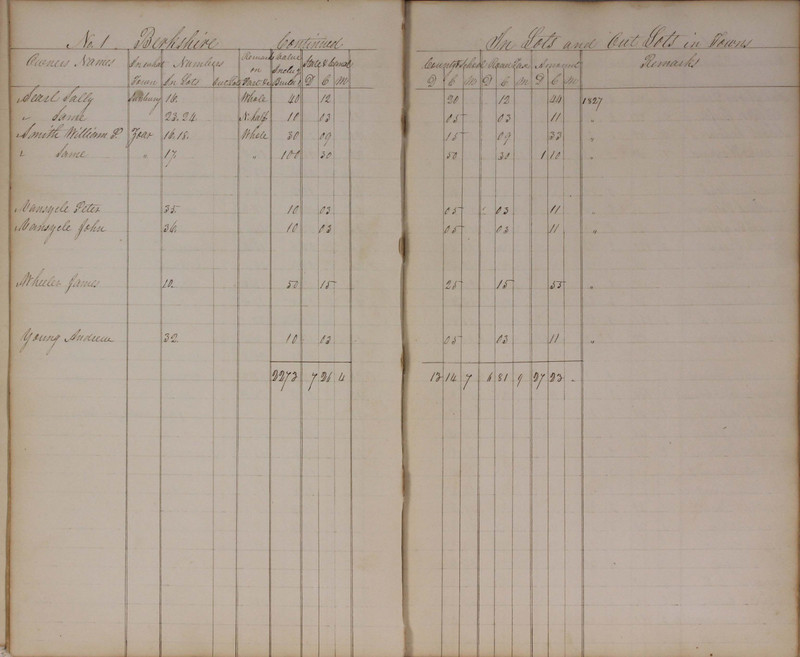 No. 1 Berkshire Continued In Lots and Out Lots in Towns
Owners Names In what Town Numbers In Lots Out Lots Remarks on Value State & Canal D C M County & School D C M Road Tax D C M Amount D C M Remarks
Searl Sally 16. Whole 40 12 20 12 44 1827
" Same 23. 24 N. half 10 03 05 03 11 "
Smith William P 16. 18. Whole 30 09 15 09 33 "
" Same " 17 " 100 30 50 30 1 10 "
Vansycle Peter 35 10 03 05 03 11 "
Vansycle John 36. 10 03 05 03 11 "
Wheeler James 10. 50 15 25 15 55 "
Young Andrew 32 10 03 05 03 11 "
2273 7 26 4 13 14 7 6 81 9 27 23 -